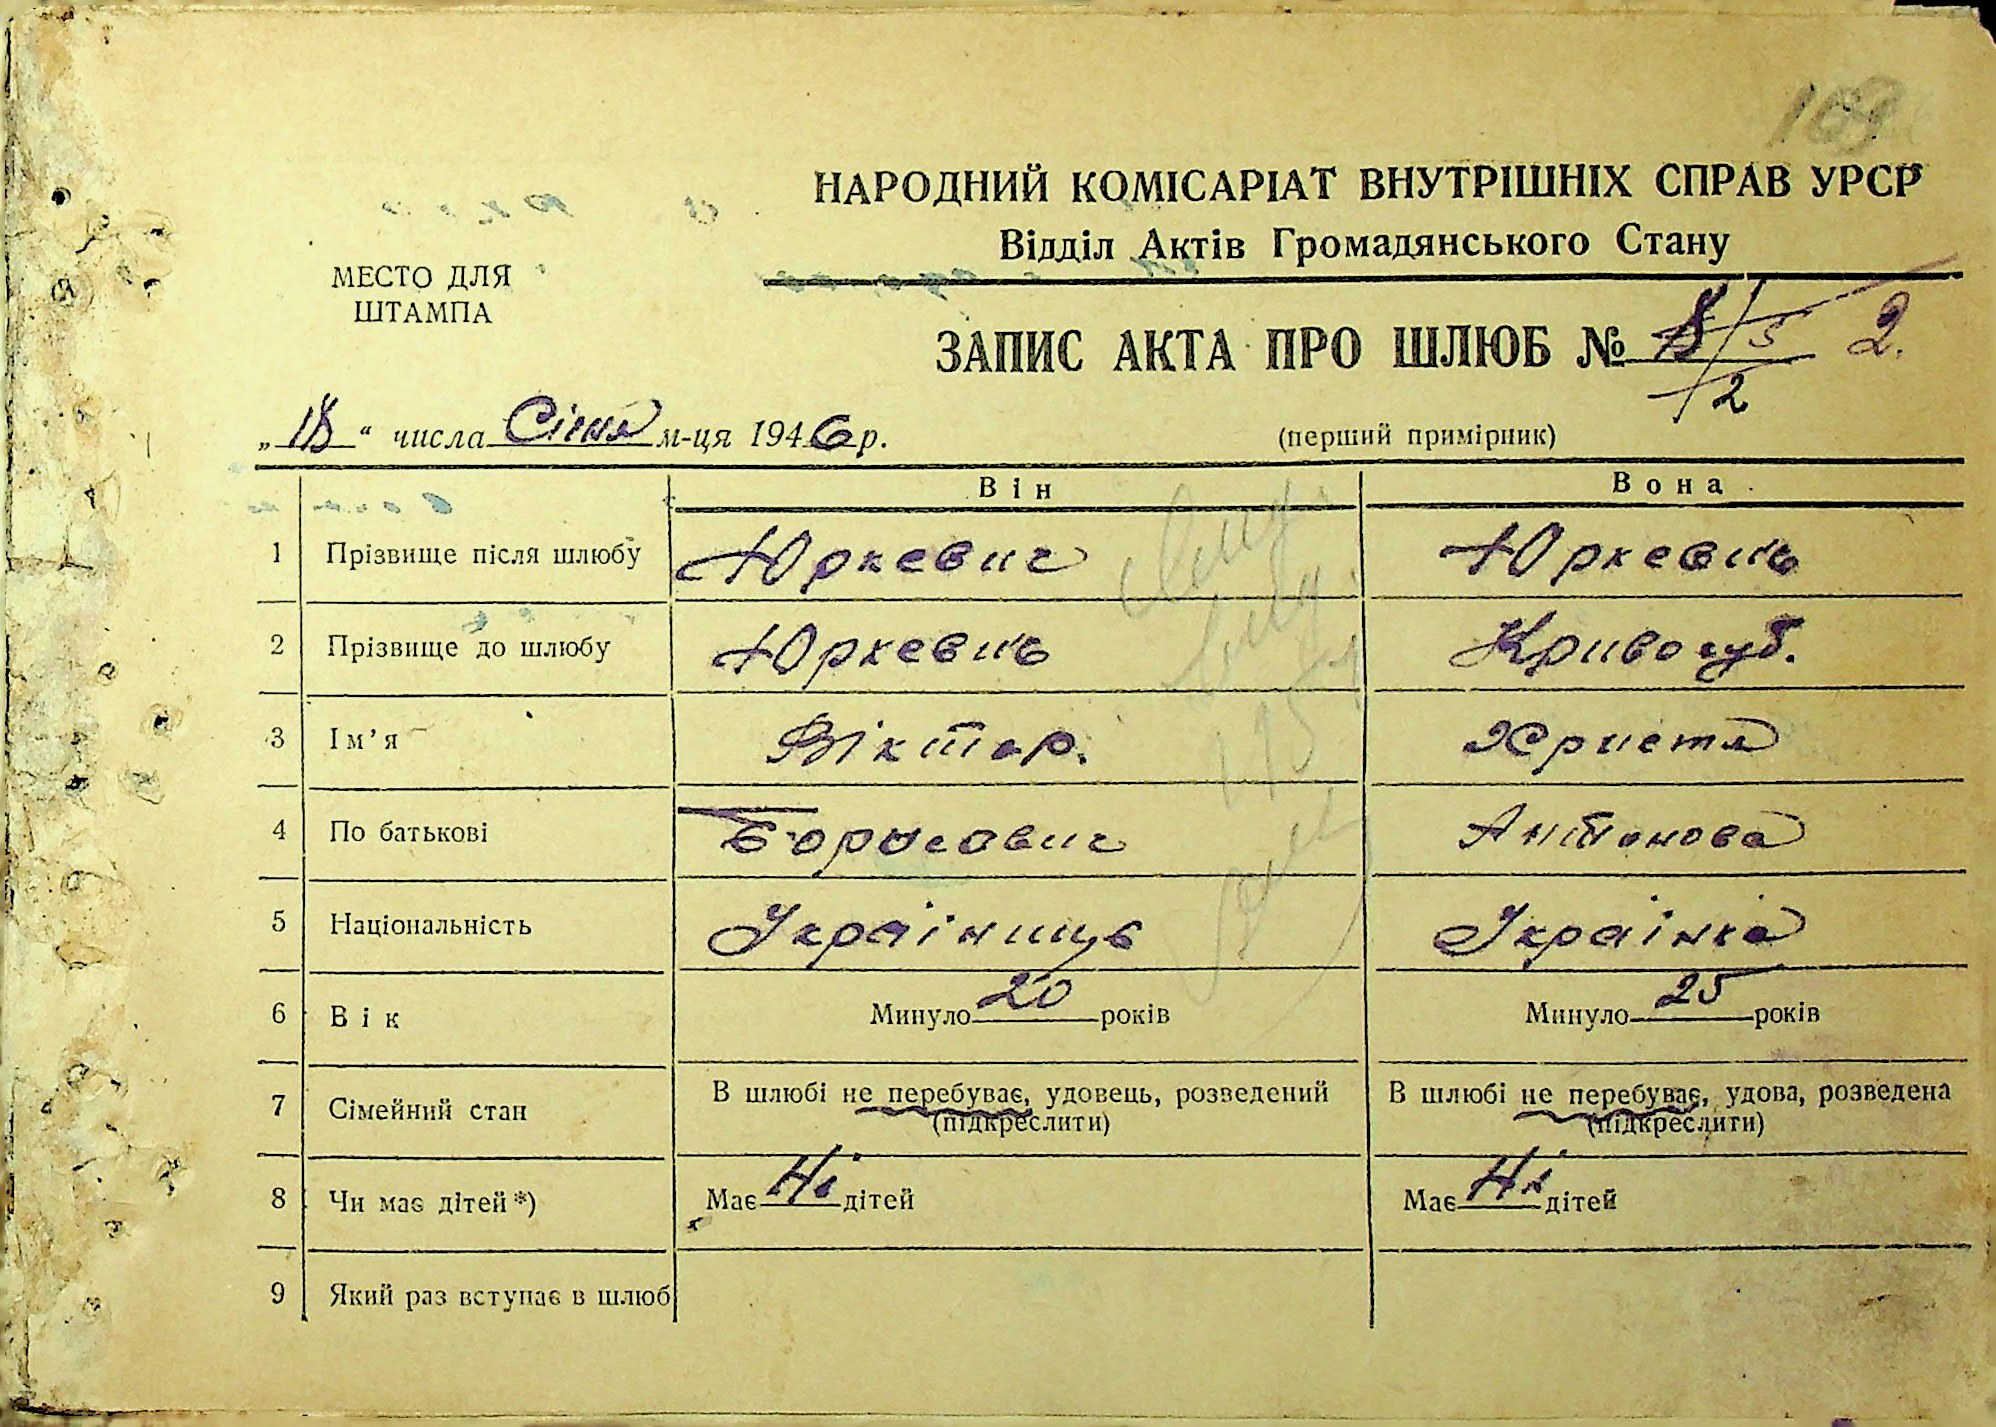 109
НАРОДНИЙ КОМІСАРІАТ ВНУТРІШНІХ СПРАВ УРСР
Відділ Актів Громадянського Стану
МЕСТО ДЛЯ
ШТАМПА
ЗАПИС АКТА ПРО ШЛЮБ № 2.
2
„18“ числа Січня м-ця 1946 р.
(перший примірник)
Він Вона
1 Прізвище після шлюбу Юркевич Юркевич
2 Прізвище до шлюбу Юркевич Кривогуб.
3 Ім’я Віктор. Христя
4 По батькові Борисович Антонова
5 Національність Українець Українка
6 Вік Минуло 20 років Минуло 25 років
7 Сімейний стан В шлюбі не перебуває, удовець, розведений В шлюбі не перебуває, удова, розведена
(підкреслити) (підкреслити)
8 Чи має дітей*) Має Ні дітей Має Ні дітей
9 Який раз вступає в шлюб